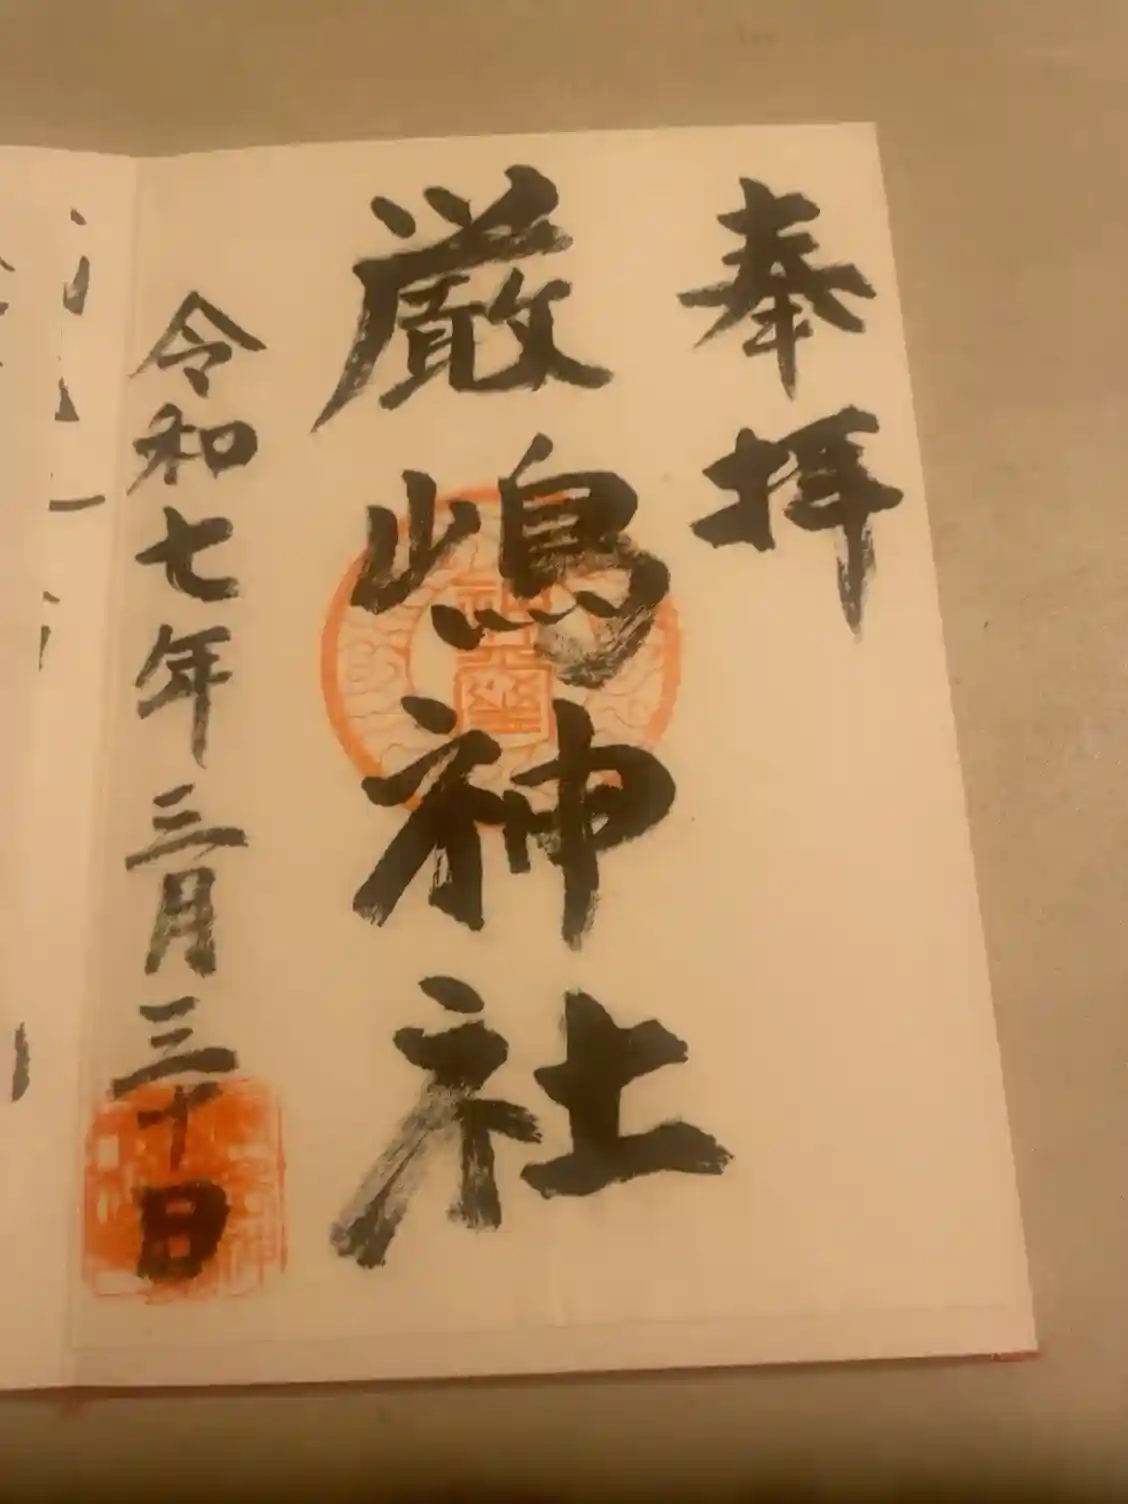 奉拝
厳嶋神社
令和七年三月三十日